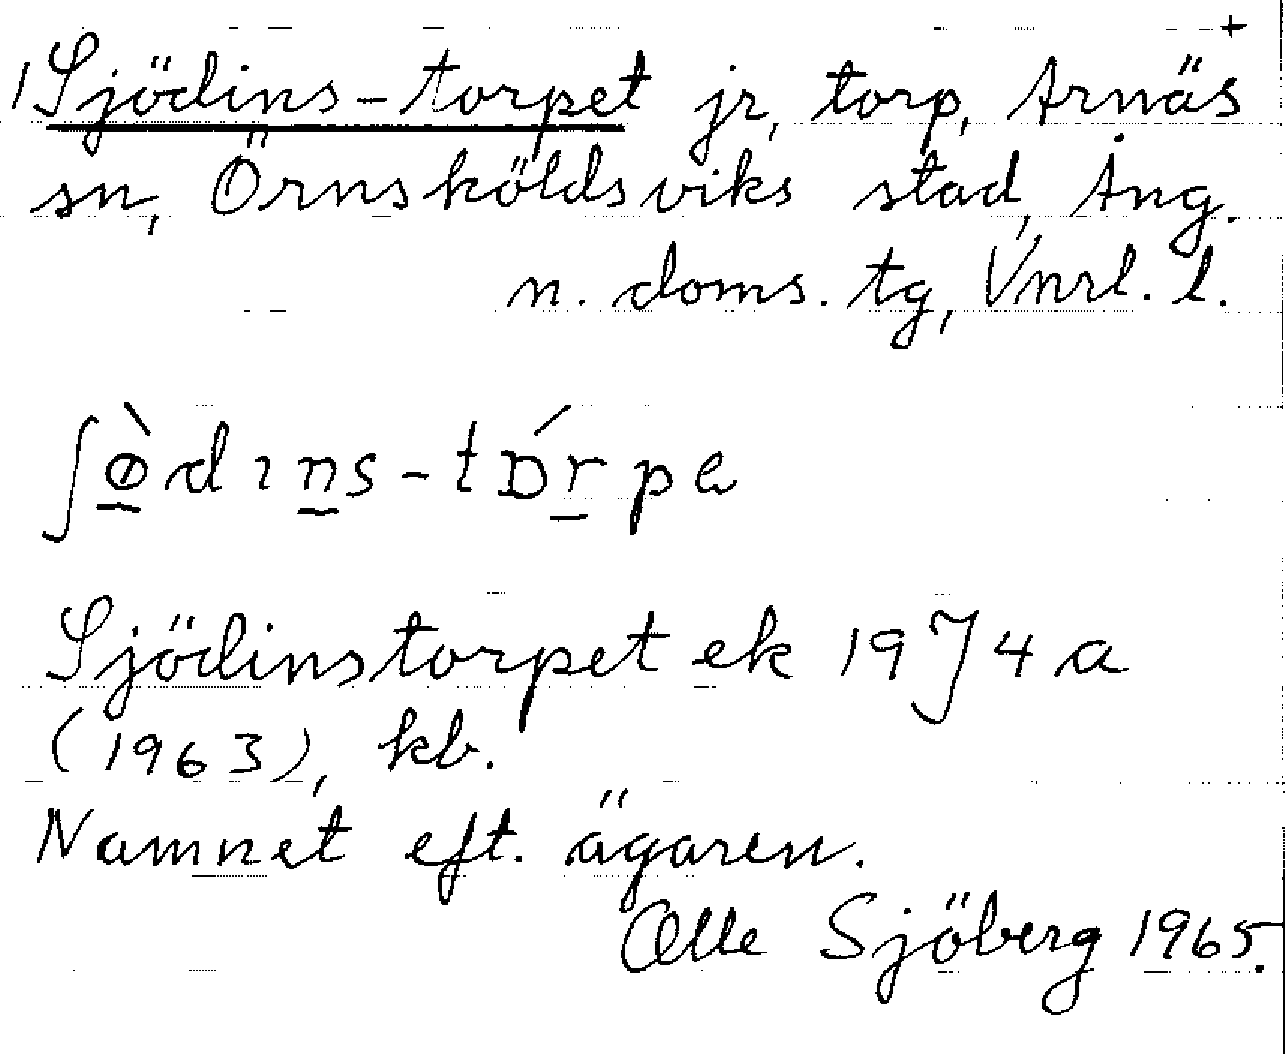 +
1 Sjödins-torpet jr, torp, Arnäs
sn, Örnsköldsviks stad, Ång.
n. doms. tg, Vnrl. l.
ʃɵ̀dıns-tɒ́rpa
Sjödinstorpet ek 19J4a
(1963), kb.
Namnet eft. ägaren.
Olle Sjöberg 1965.